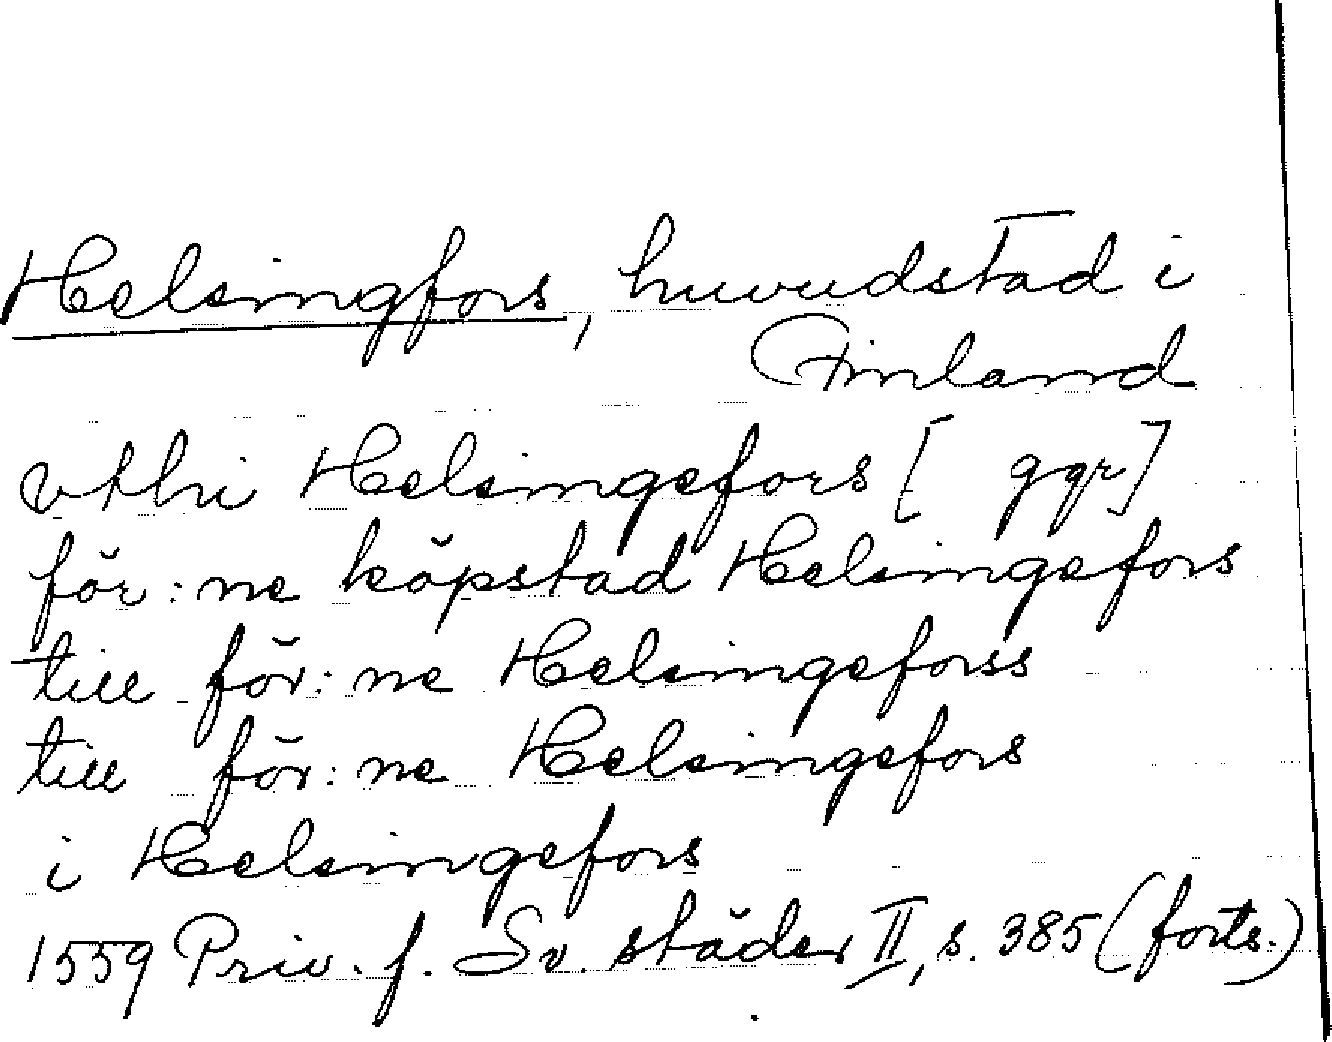 Helsingfors, huvudstad i
Finland
vthi Helsingefors [ ggr]
för:ne köpstad Helsingefors
till för:ne Helsingeforss
till för:ne Helsingefors
i Helsingefors
1559 Priv. f. Sv. städer II, s. 385 (forts.)